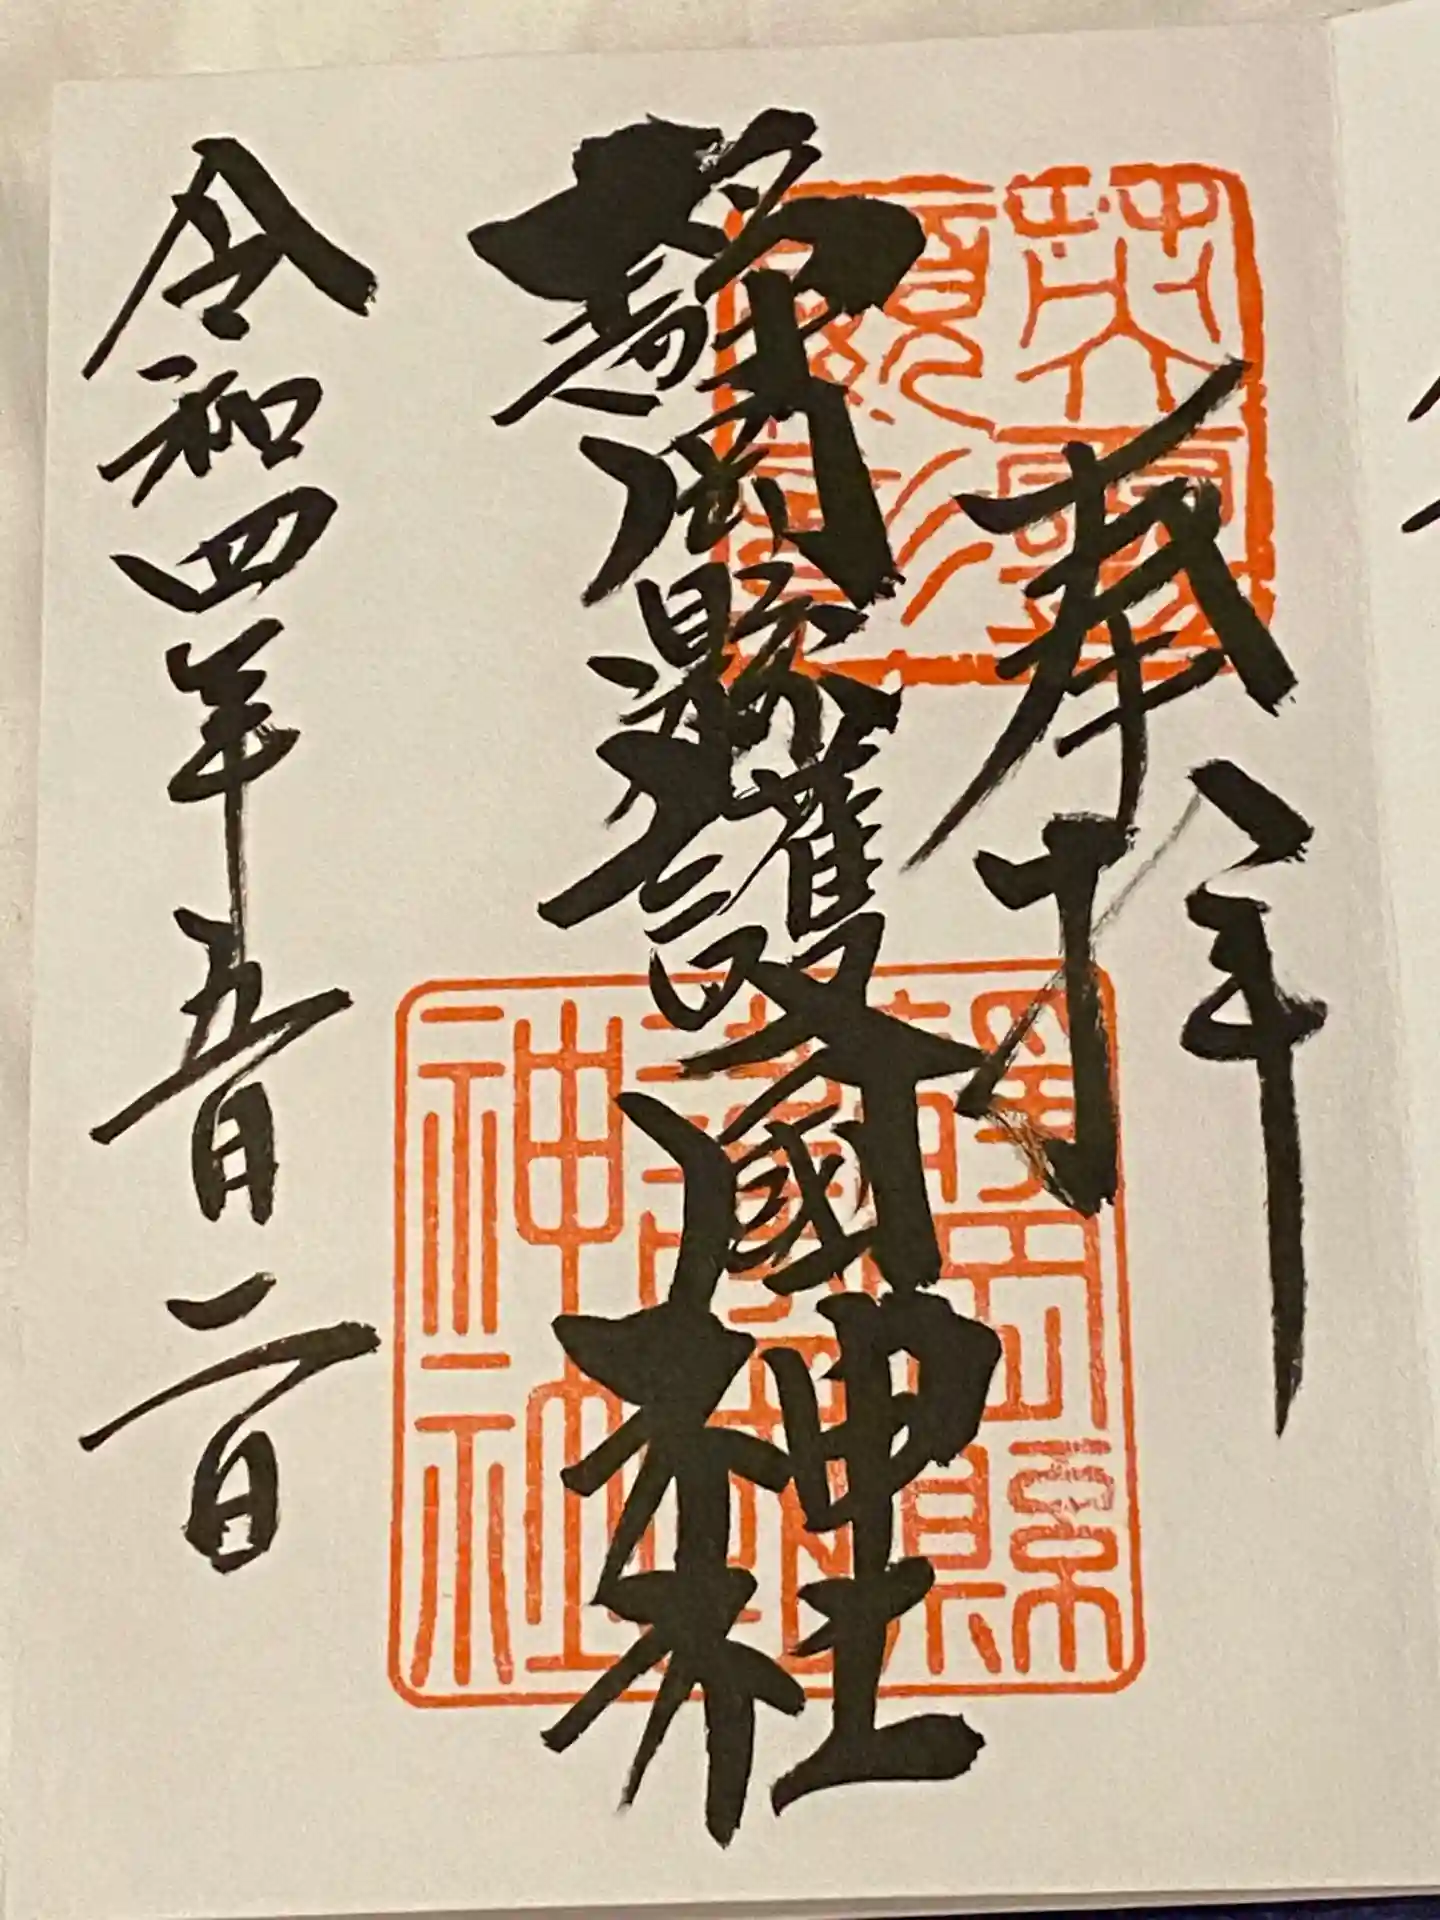 奉拝
静岡縣護國神社
令和四年五月二日
静岡縣護國神社
英靈顕彰